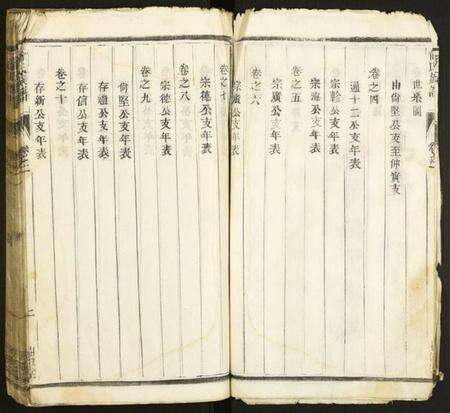 世系圖
由尚堅公支至仲實支
卷之四
通十二公支年表
宗幹公支年表
宗海公支年表
卷之五
宗廣公支年表
卷之六
宗廣公支年表
卷之七
宗德公支年表
卷之八
宗德公支年表
卷之九
尚堅公支年表
存禮公支年表
存信公支年表
卷之十
存新公支年表